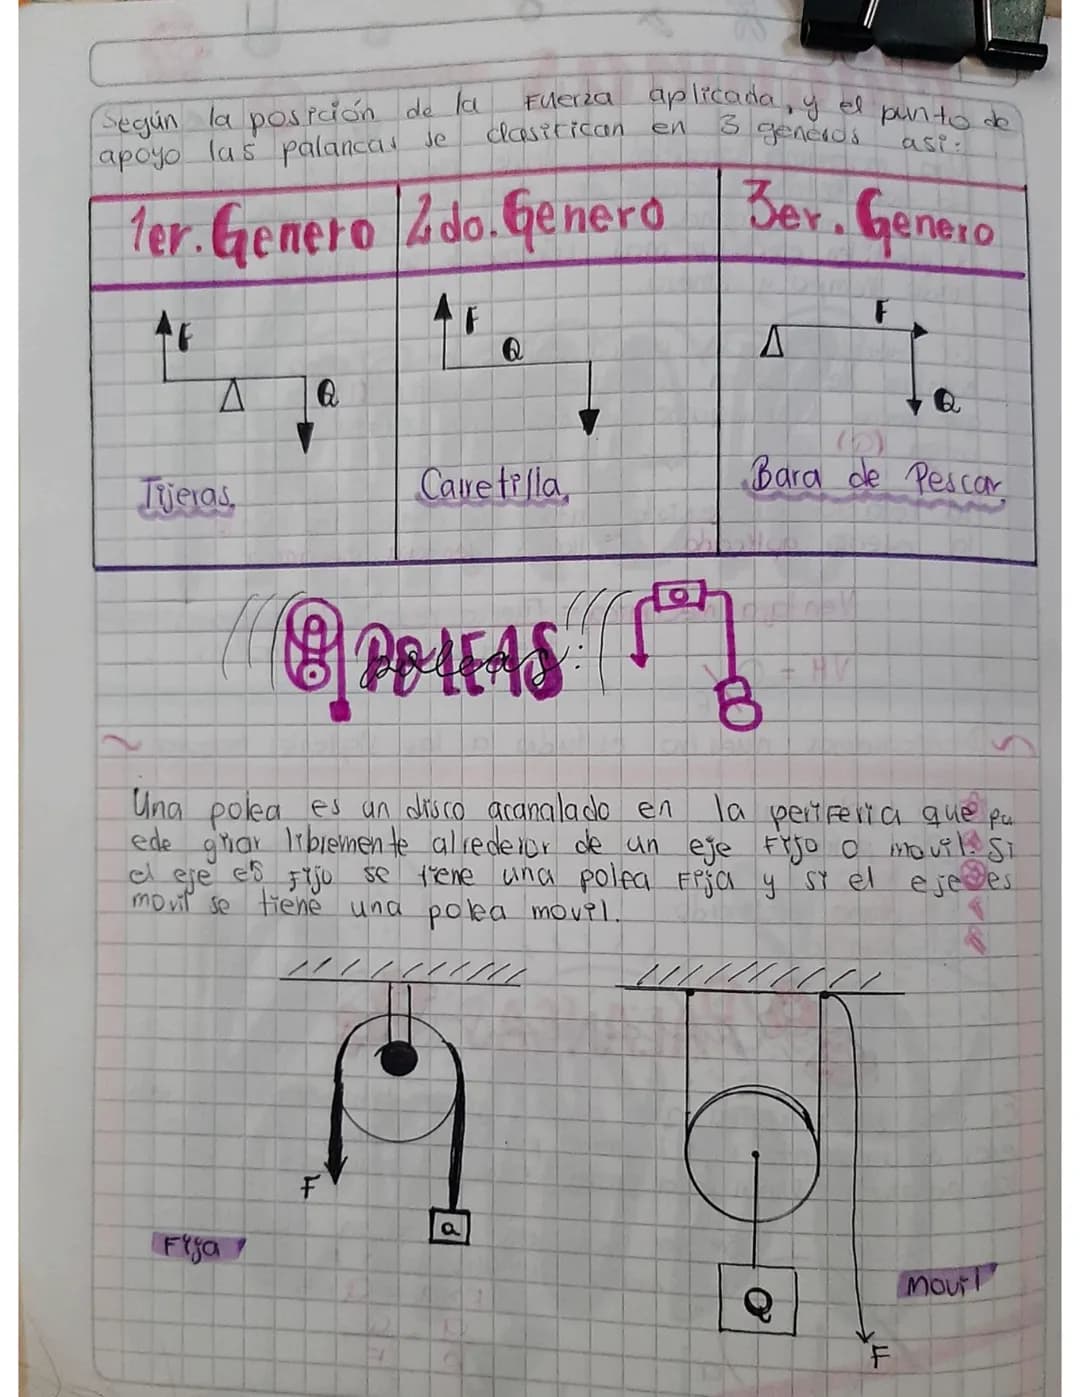 Según la posición de la Fuerza aplicada, y el punto de
apoyo las palancas se clasifican en 3 generos asi:
1er. Genero
2do. Genero
3er. Genero
F
Q
Tijeras
F
Q
Carretilla
F
Q
Bara de Pescar
POLEAS
poleas
Una polea es un disco acanalado en la periferia que pu
ede girar libremente alrededor de un eje Fijo o movil. Si
el eje es Fijo se tiene una polea Fija y si el eje es
movil se tiene una polea movil.
F
a
Fija
Q
Movil
F